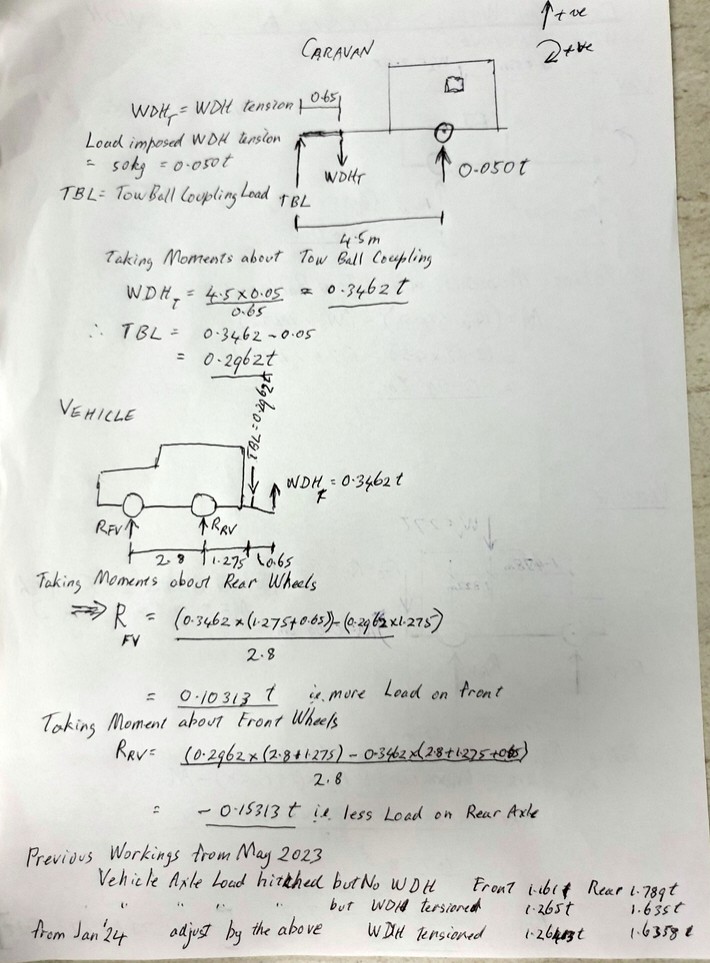 ↑+ve
↻+ve
CARAVAN
WDH_T = WDH tension
0.65
Load imposed WDH tension
= 50kg = 0.050t
TBL = Tow Ball Coupling Load
TBL
WDH_T
0.050t
4.5m
Taking Moments about Tow Ball Coupling
WDH_T = 4.5 x 0.05 = 0.3462 t
0.65
∴ TBL = 0.3462 - 0.05
= 0.2962t
VEHICLE
TBL = 0.2962t
WDH_T = 0.3462 t
R_FV R_RV
2.8 1.275 0.65
Taking Moments about Rear Wheels
⇒ R_FV = (0.3462 x (1.275+0.65)) - (0.2962 x 1.275)
2.8
= 0.10313 t i.e. more Load on front
Taking Moment about Front Wheels
R_RV = (0.2962 x (2.8+1.275) - 0.3462 x (2.8+1.275+0.65)
2.8
= - 0.15313 t i.e. less Load on Rear Axle
Previous Workings from May 2023
Vehicle Axle Load hitched but No WDH Front 1.161t Rear 1.789t
" " " " but WDH tensioned 1.265t 1.635t
from Jan '24 adjust by the above WDH tensioned 1.6358t